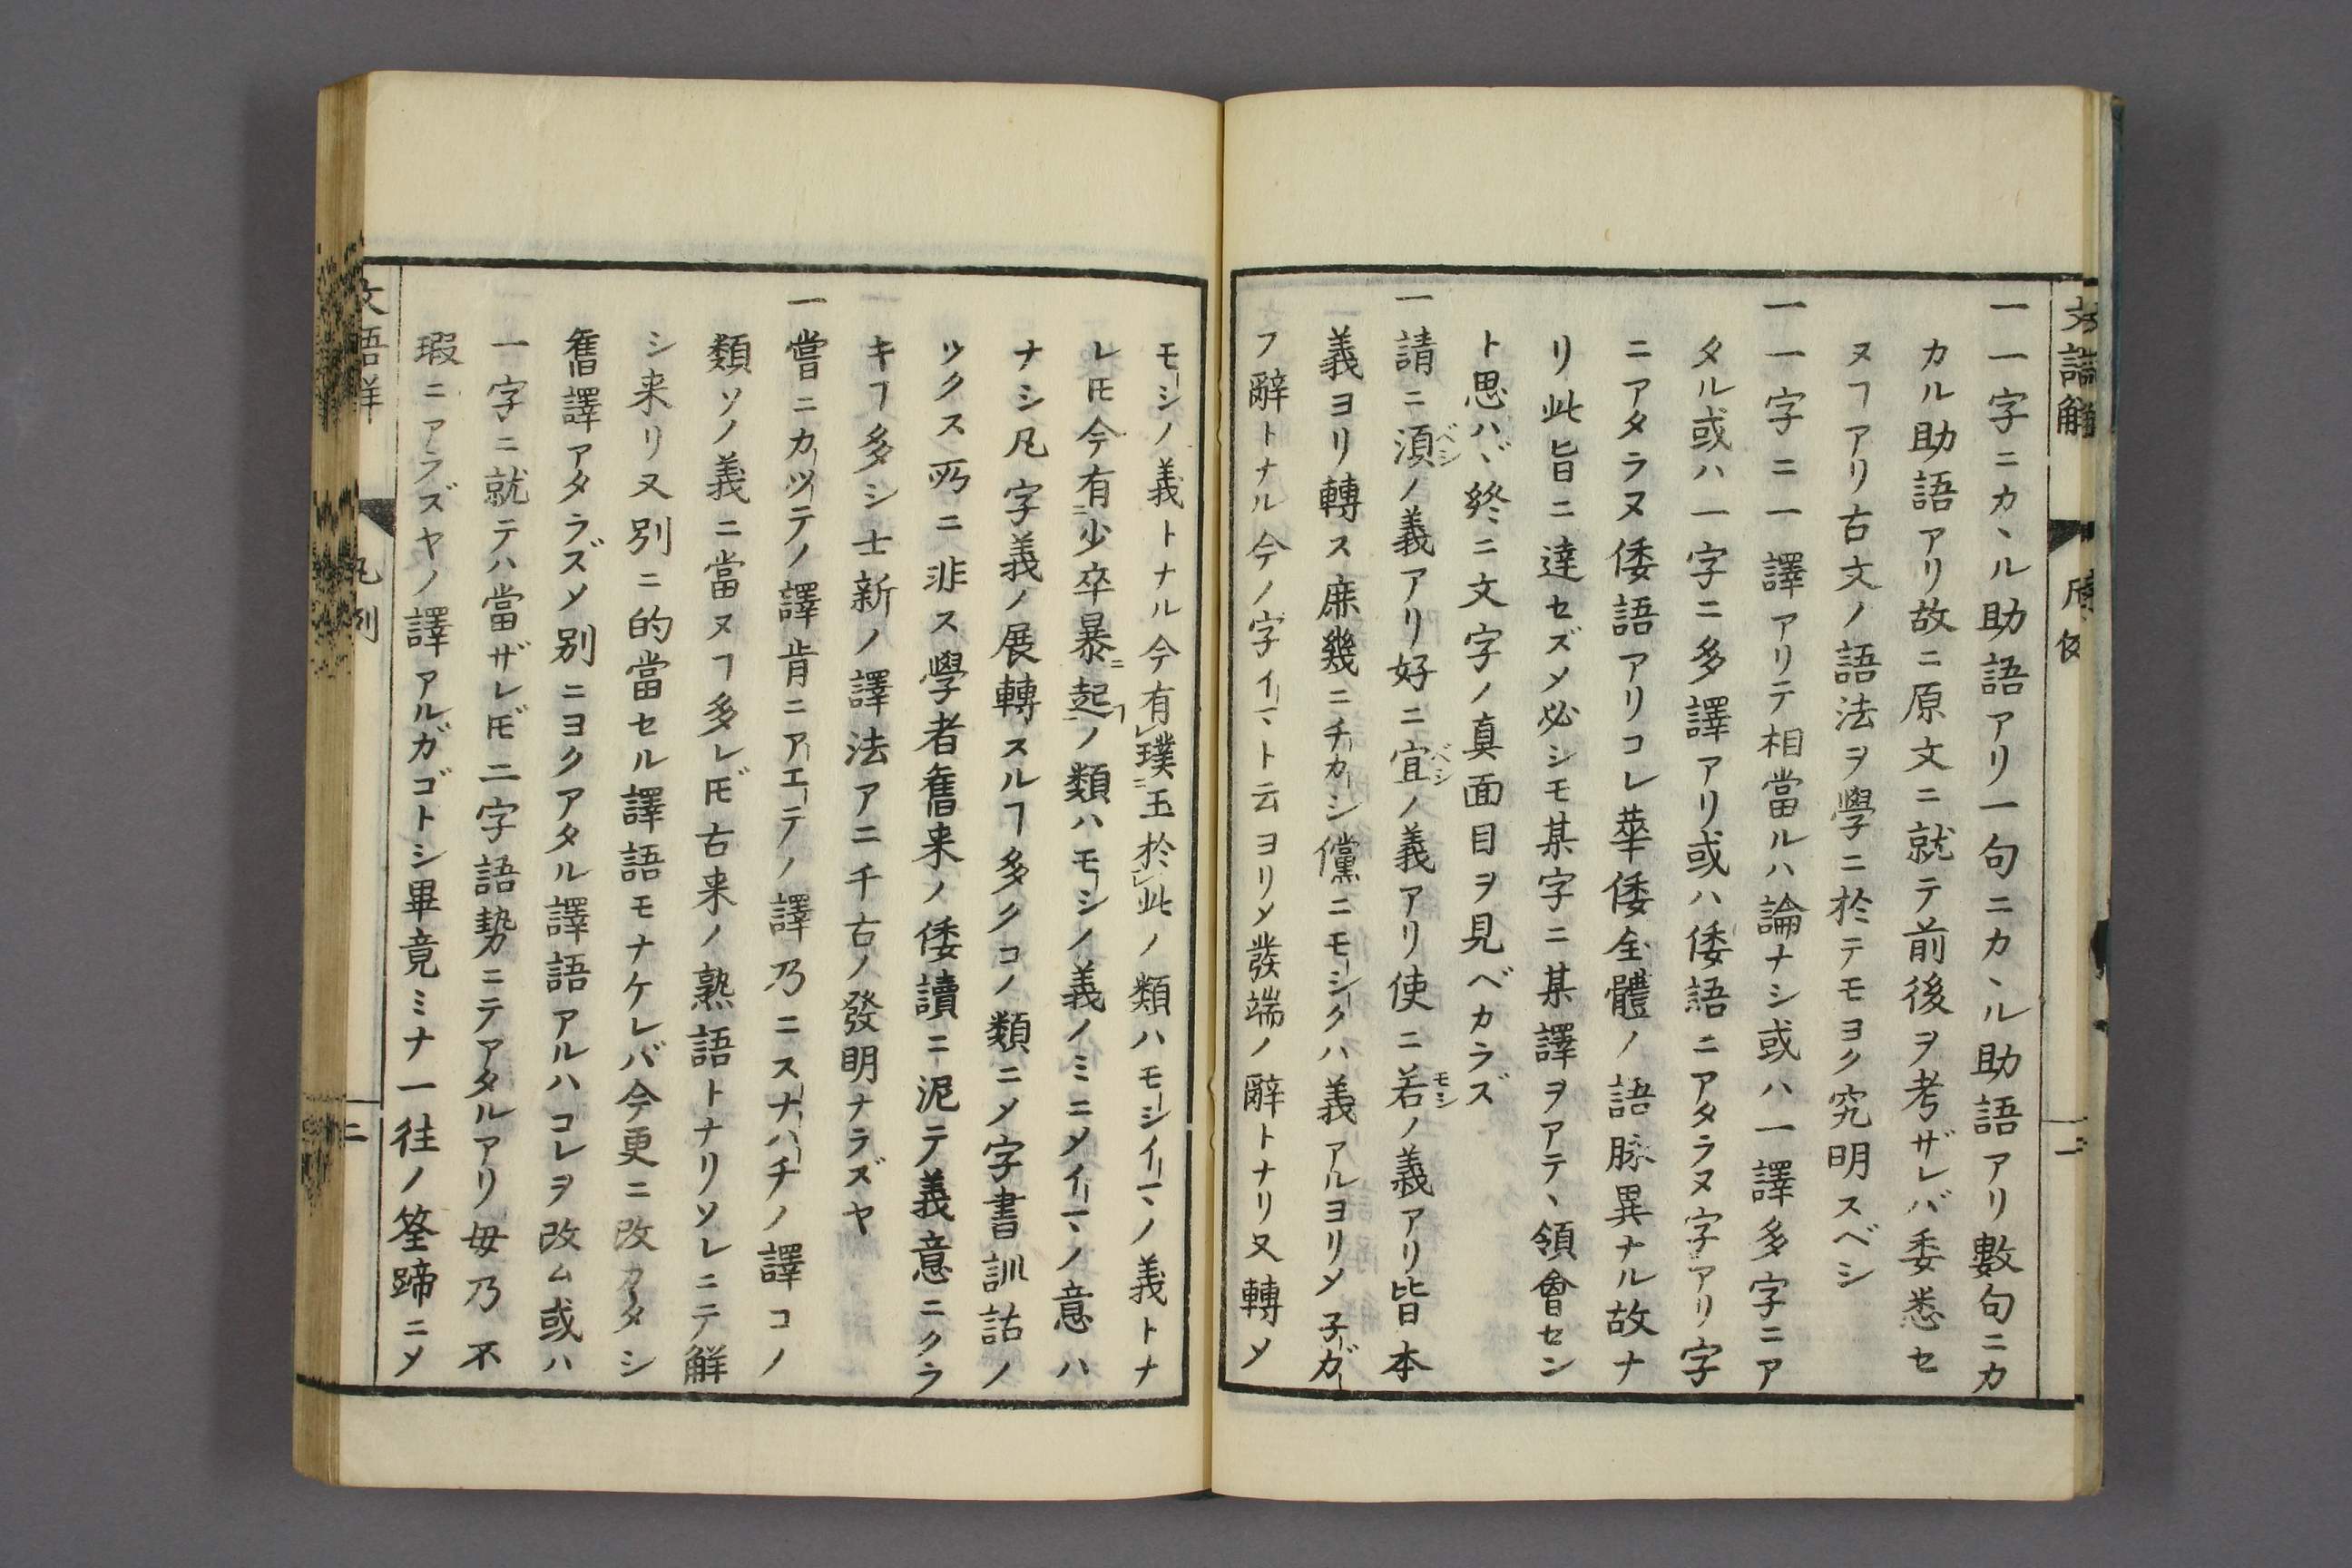 文語解 凡例
一一字ニカヽル助語アリ一句ニカヽル助語アリ數句ニカ
カル助語アリ故ニ原文ニ就テ前後ヲ考ザレバ委悉セ
ヌヿアリ古文ノ語法ヲ學ニ於テモヨク究明スベシ
一一字ニ一譯アリテ相當ルハ論ナシ或ハ一譯多字ニア
タル或ハ一字ニ多譯アリ或ハ倭語ニアタラヌ字アリ字
ニアタラヌ倭語アリコレ華倭全體ノ語脉異ナル故ナ
リ此旨ニ達セズ〆必シモ某字ニ某譯ヲアテヽ領會セン
ト思ハヾ終ニ文字ノ真面目ヲ見ベカラズ
一請ニ須ベシノ義アリ好ニ宜ベシノ義アリ使ニ若モシノ義アリ皆本
義ヨリ轉ス庶幾ニチカシ儻ニモシクハ義アルヨリ〆子ガ
フ辭トナル今ノ字イマト云ヨリ〆發端ノ辭トナリ又轉〆
モシノ義トナル今有レ璞二玉於レ此ノ類ハモシイマノ義トナ
レ𪜈今有二少卒暴ニ起一ノ類ハモシノ義ノミニ〆イマノ意ハ
ナシ凡字義ノ展轉スルヿ多クコノ類ニ〆字書訓詁ノ
ツクス所ニ非ス學者舊来ノ倭讀ニ泥テ義意ニクラ
キヿ多シ士新ノ譯法アニ千古ノ發明ナラズヤ
一嘗ニカツテノ譯肯ニアエテノ譯乃ニスナハチノ譯コノ
類ソノ義ニ當ヌヿ多レ𪜈古来ノ熟語トナリソレニテ解
シ来リ又別ニ的當セル譯語モナケレバ今更ニ改カタシ
舊譯アタラズ〆別ニヨクアタル譯語アルハコレヲ改ム或ハ
一字ニ就テハ當ザレ𪜈二字語勢ニテアタルアリ毋乃不
瑕ニアラズヤノ譯アルガゴトシ畢竟ミナ一徃ノ筌蹄ニ〆
文語解 凡例 二